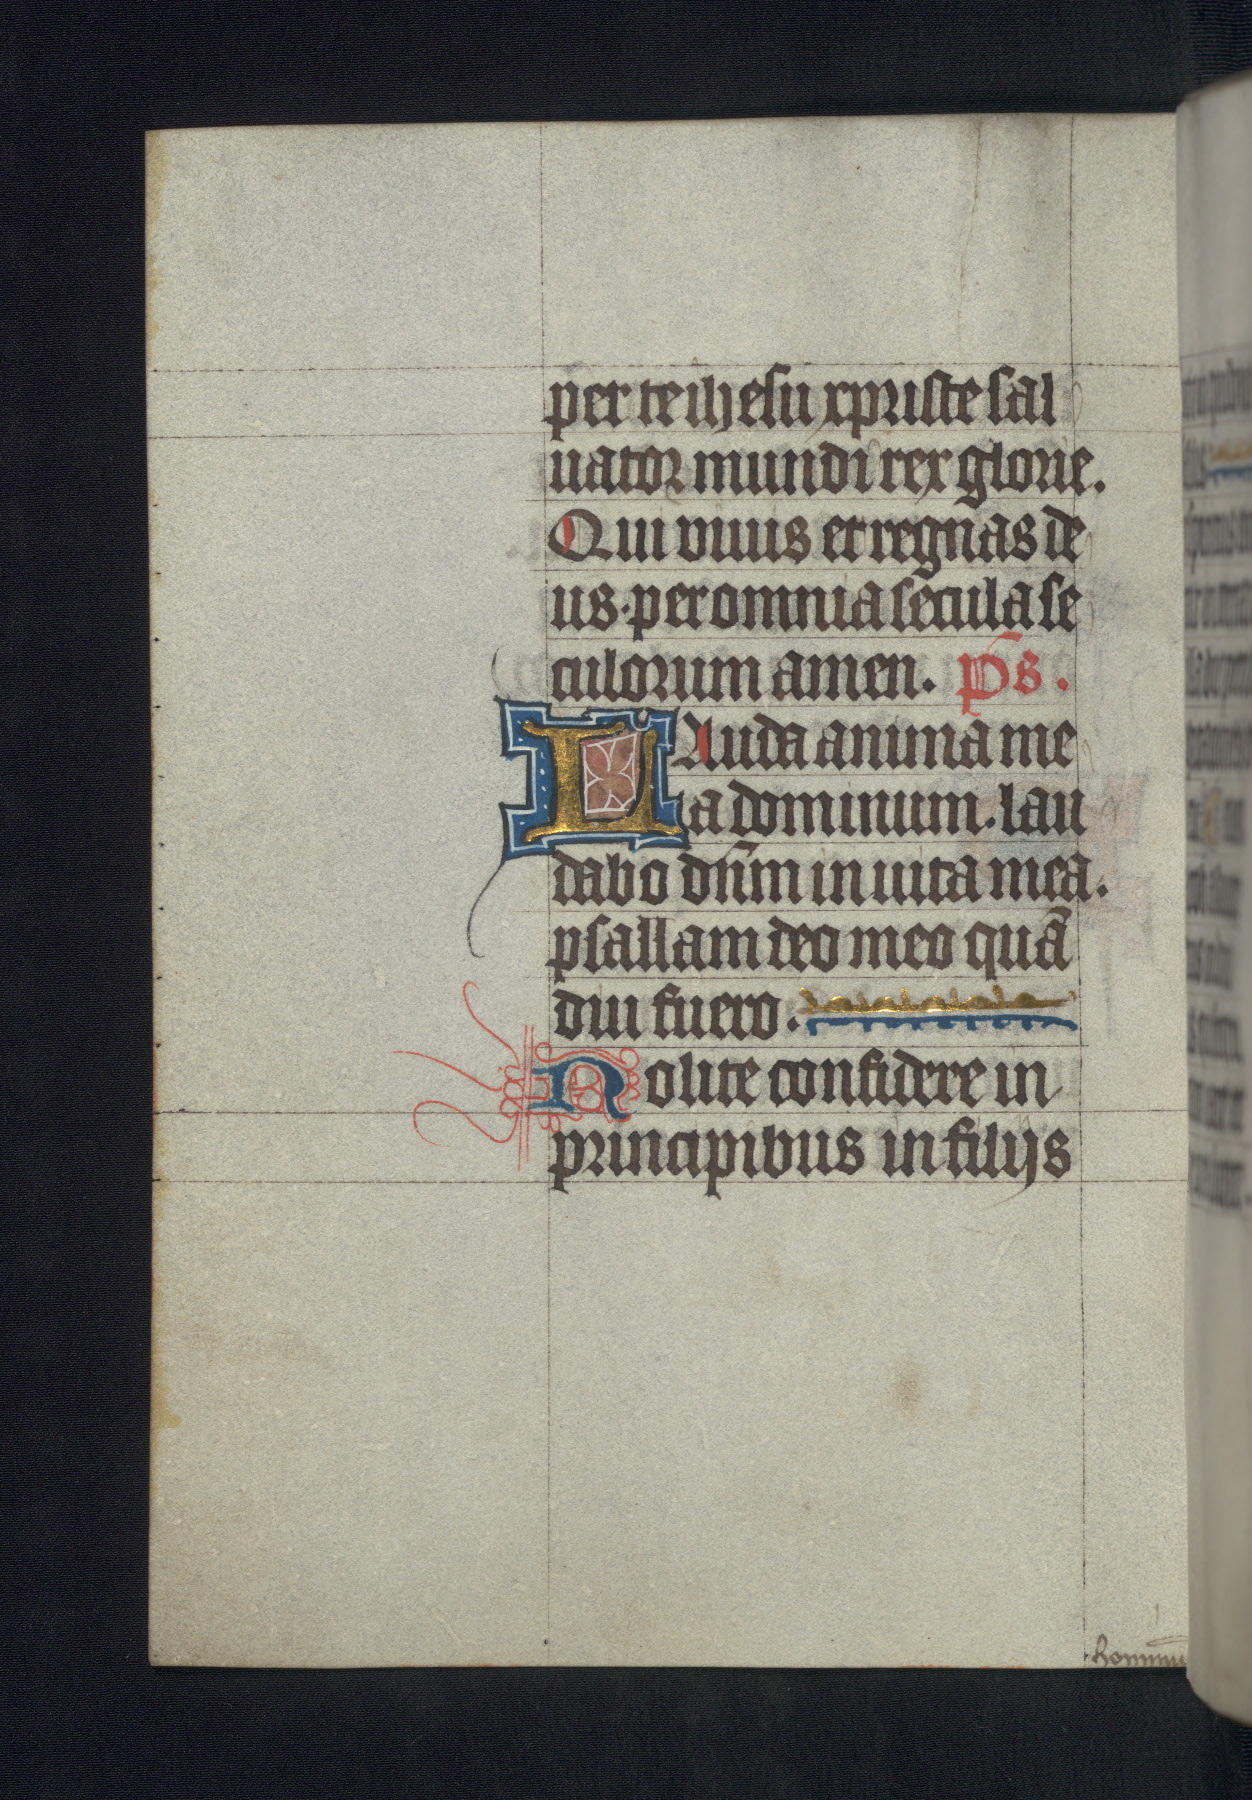 per te ihesu xpriste sal
uator mundi rex glorie.
Qui viuis et regnas de
us. per omnia secula se
culorum amen. ps.
LAuda anima me
a dominum. lau
dabo dn̄m in uita mea.
psallam deo meo quā
diu fuero.
Nolite confidere in
principibus in filijs
hominū